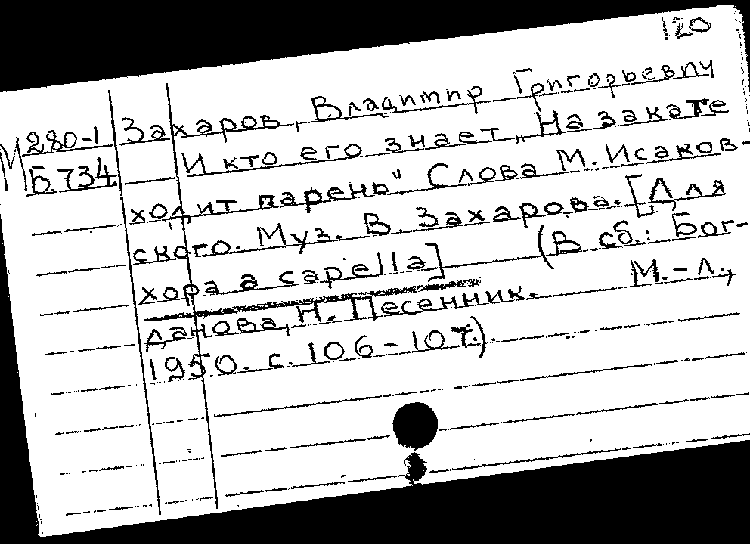 120
М 280-1
Б 734
Захаров, Владимир Григорьевич
И кто его знает „На закате
ходит парень". Слова М. Исаков-
ского. Муз. В. Захарова. [Для
хора a capella] (В сб.: Бог-
данова, Н. Песенник. М.-Л.,
1950. с. 106-107.)